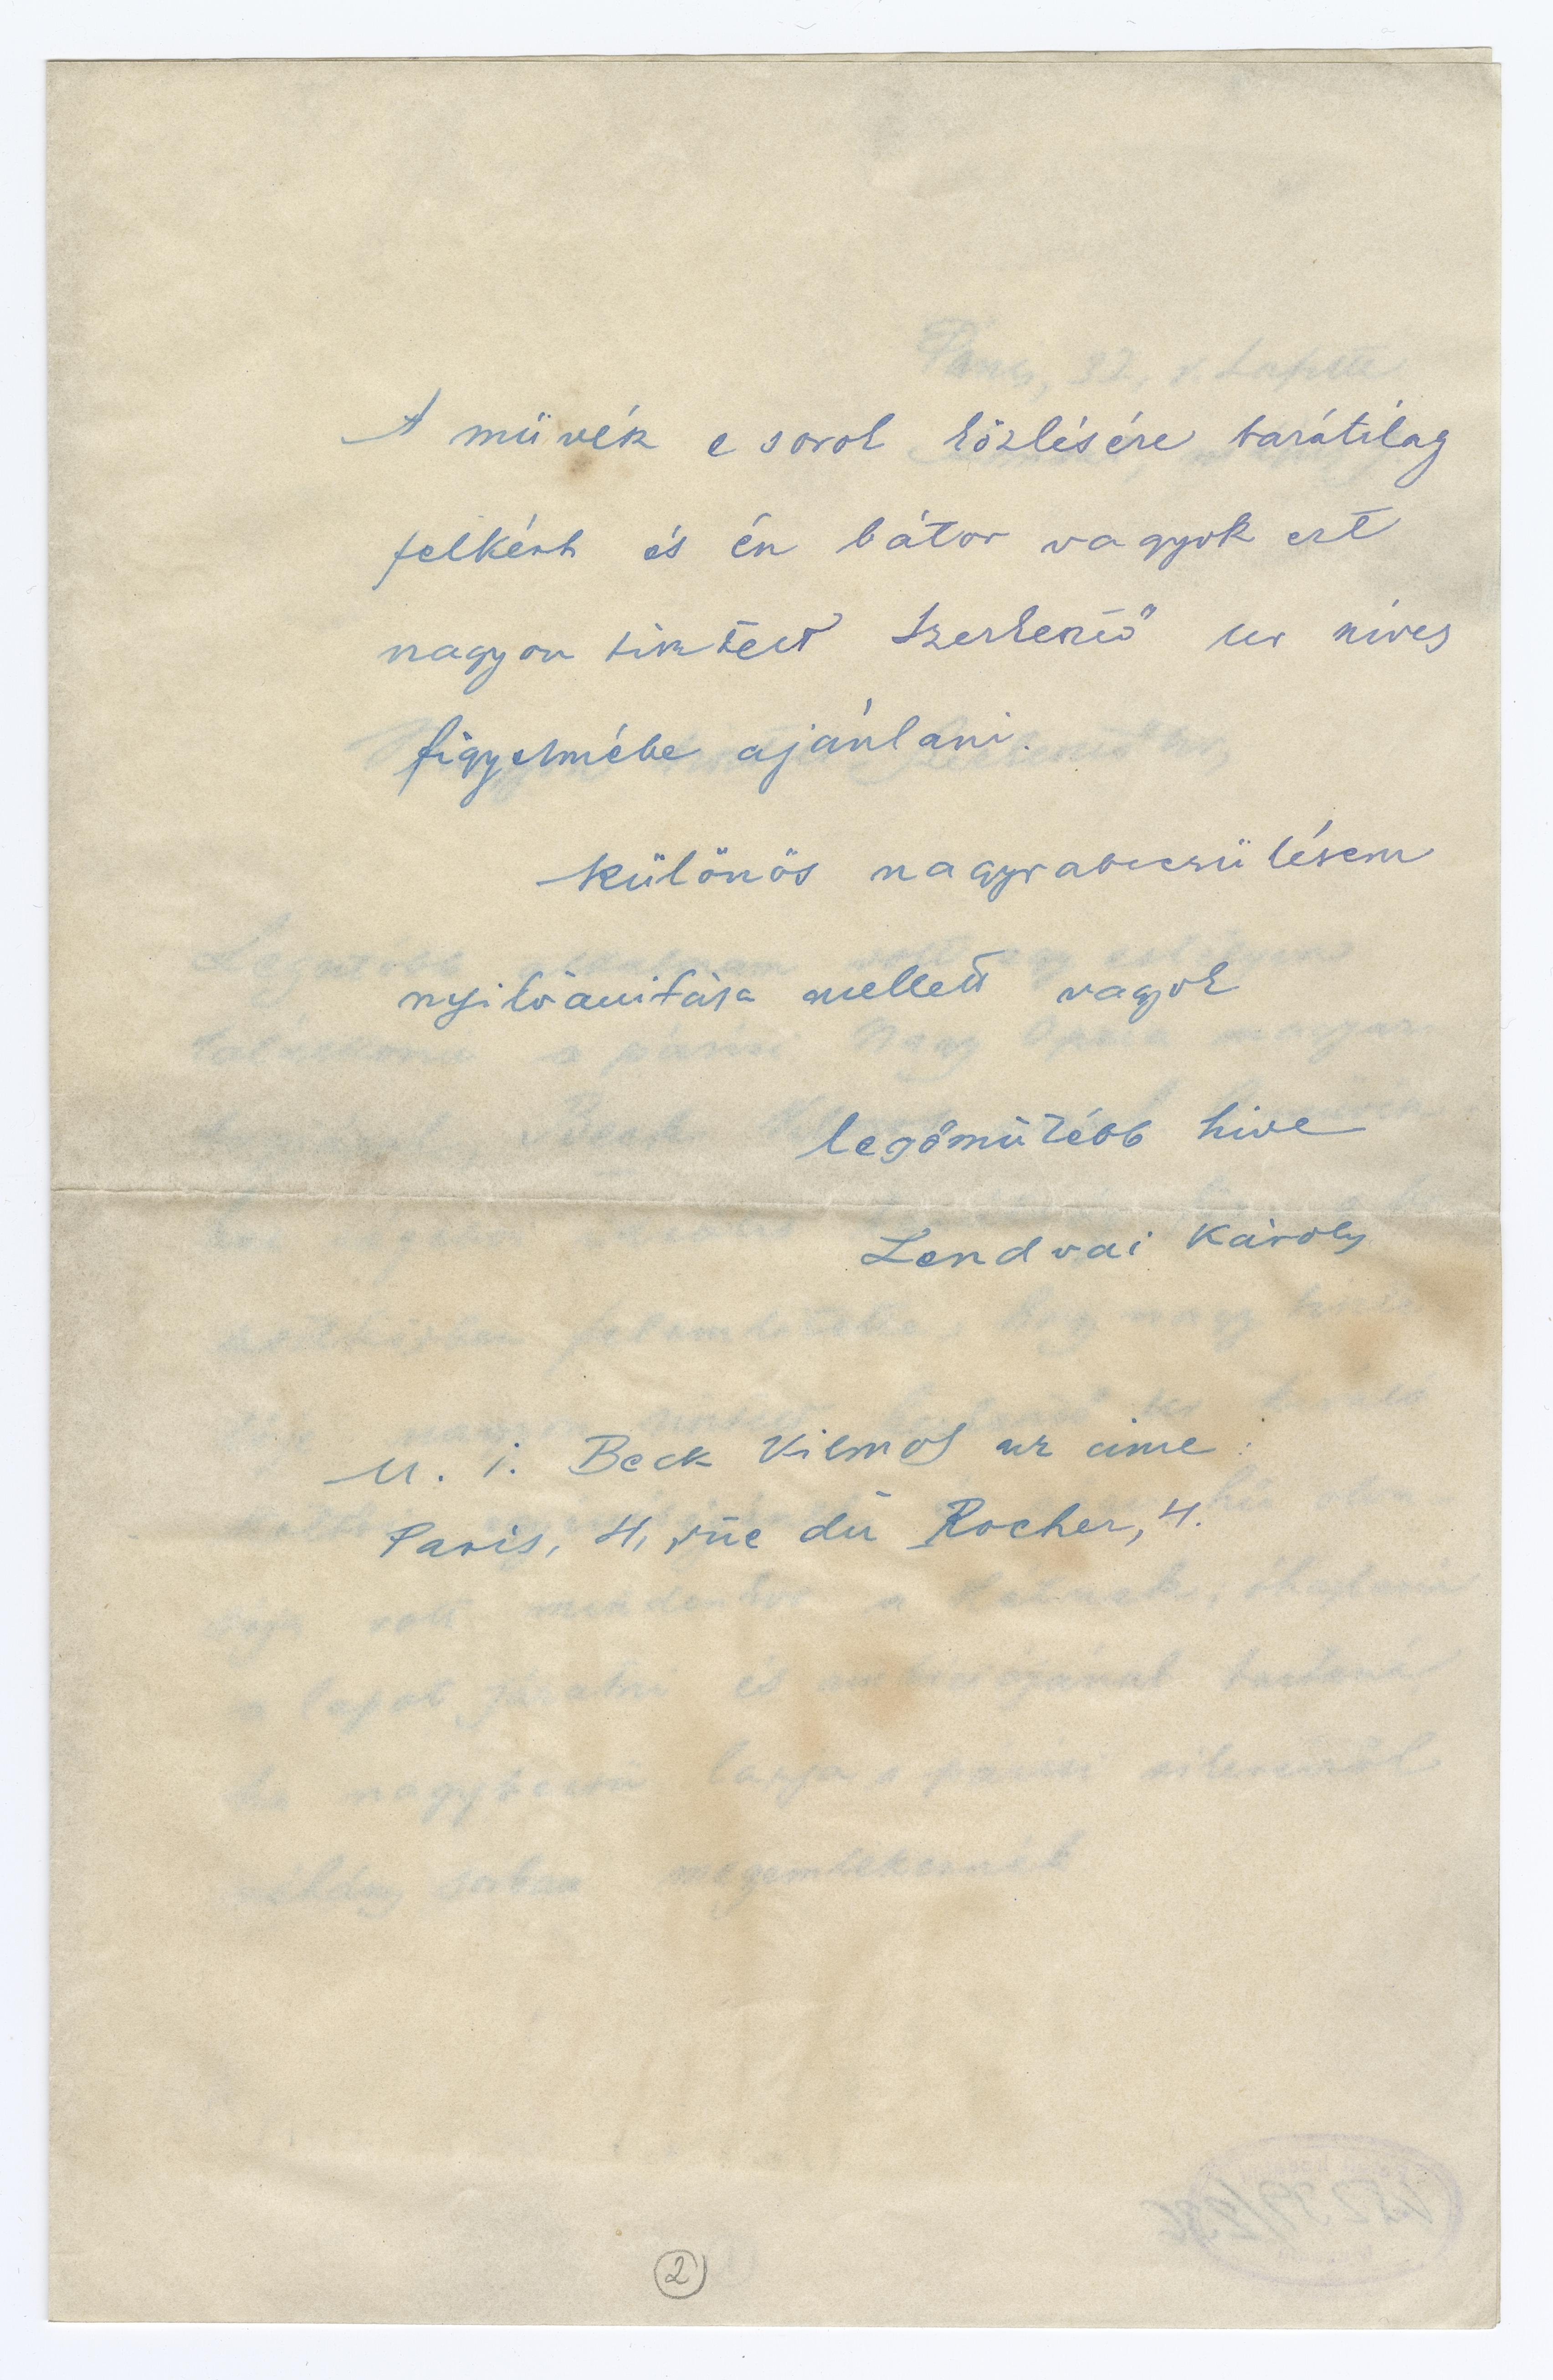 A müvék e sorok közlésére barátilag
felkért és én bátor vagyok ezt
nagyon tisztelt Szerkesztő ur nives
figyelmébe ajánlani.
különös nagyrabecsülésem
nyilvánitása mellett vagyok
legőmütébb hive
Lendvai Károly
U. i. Beck Vilmos ur cime:
Paris, 4, rüe dü Rocher, 4.
2